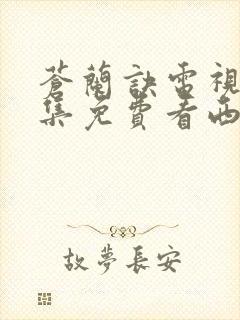 蒼蘭訣電視
集免費看西
故夢長安